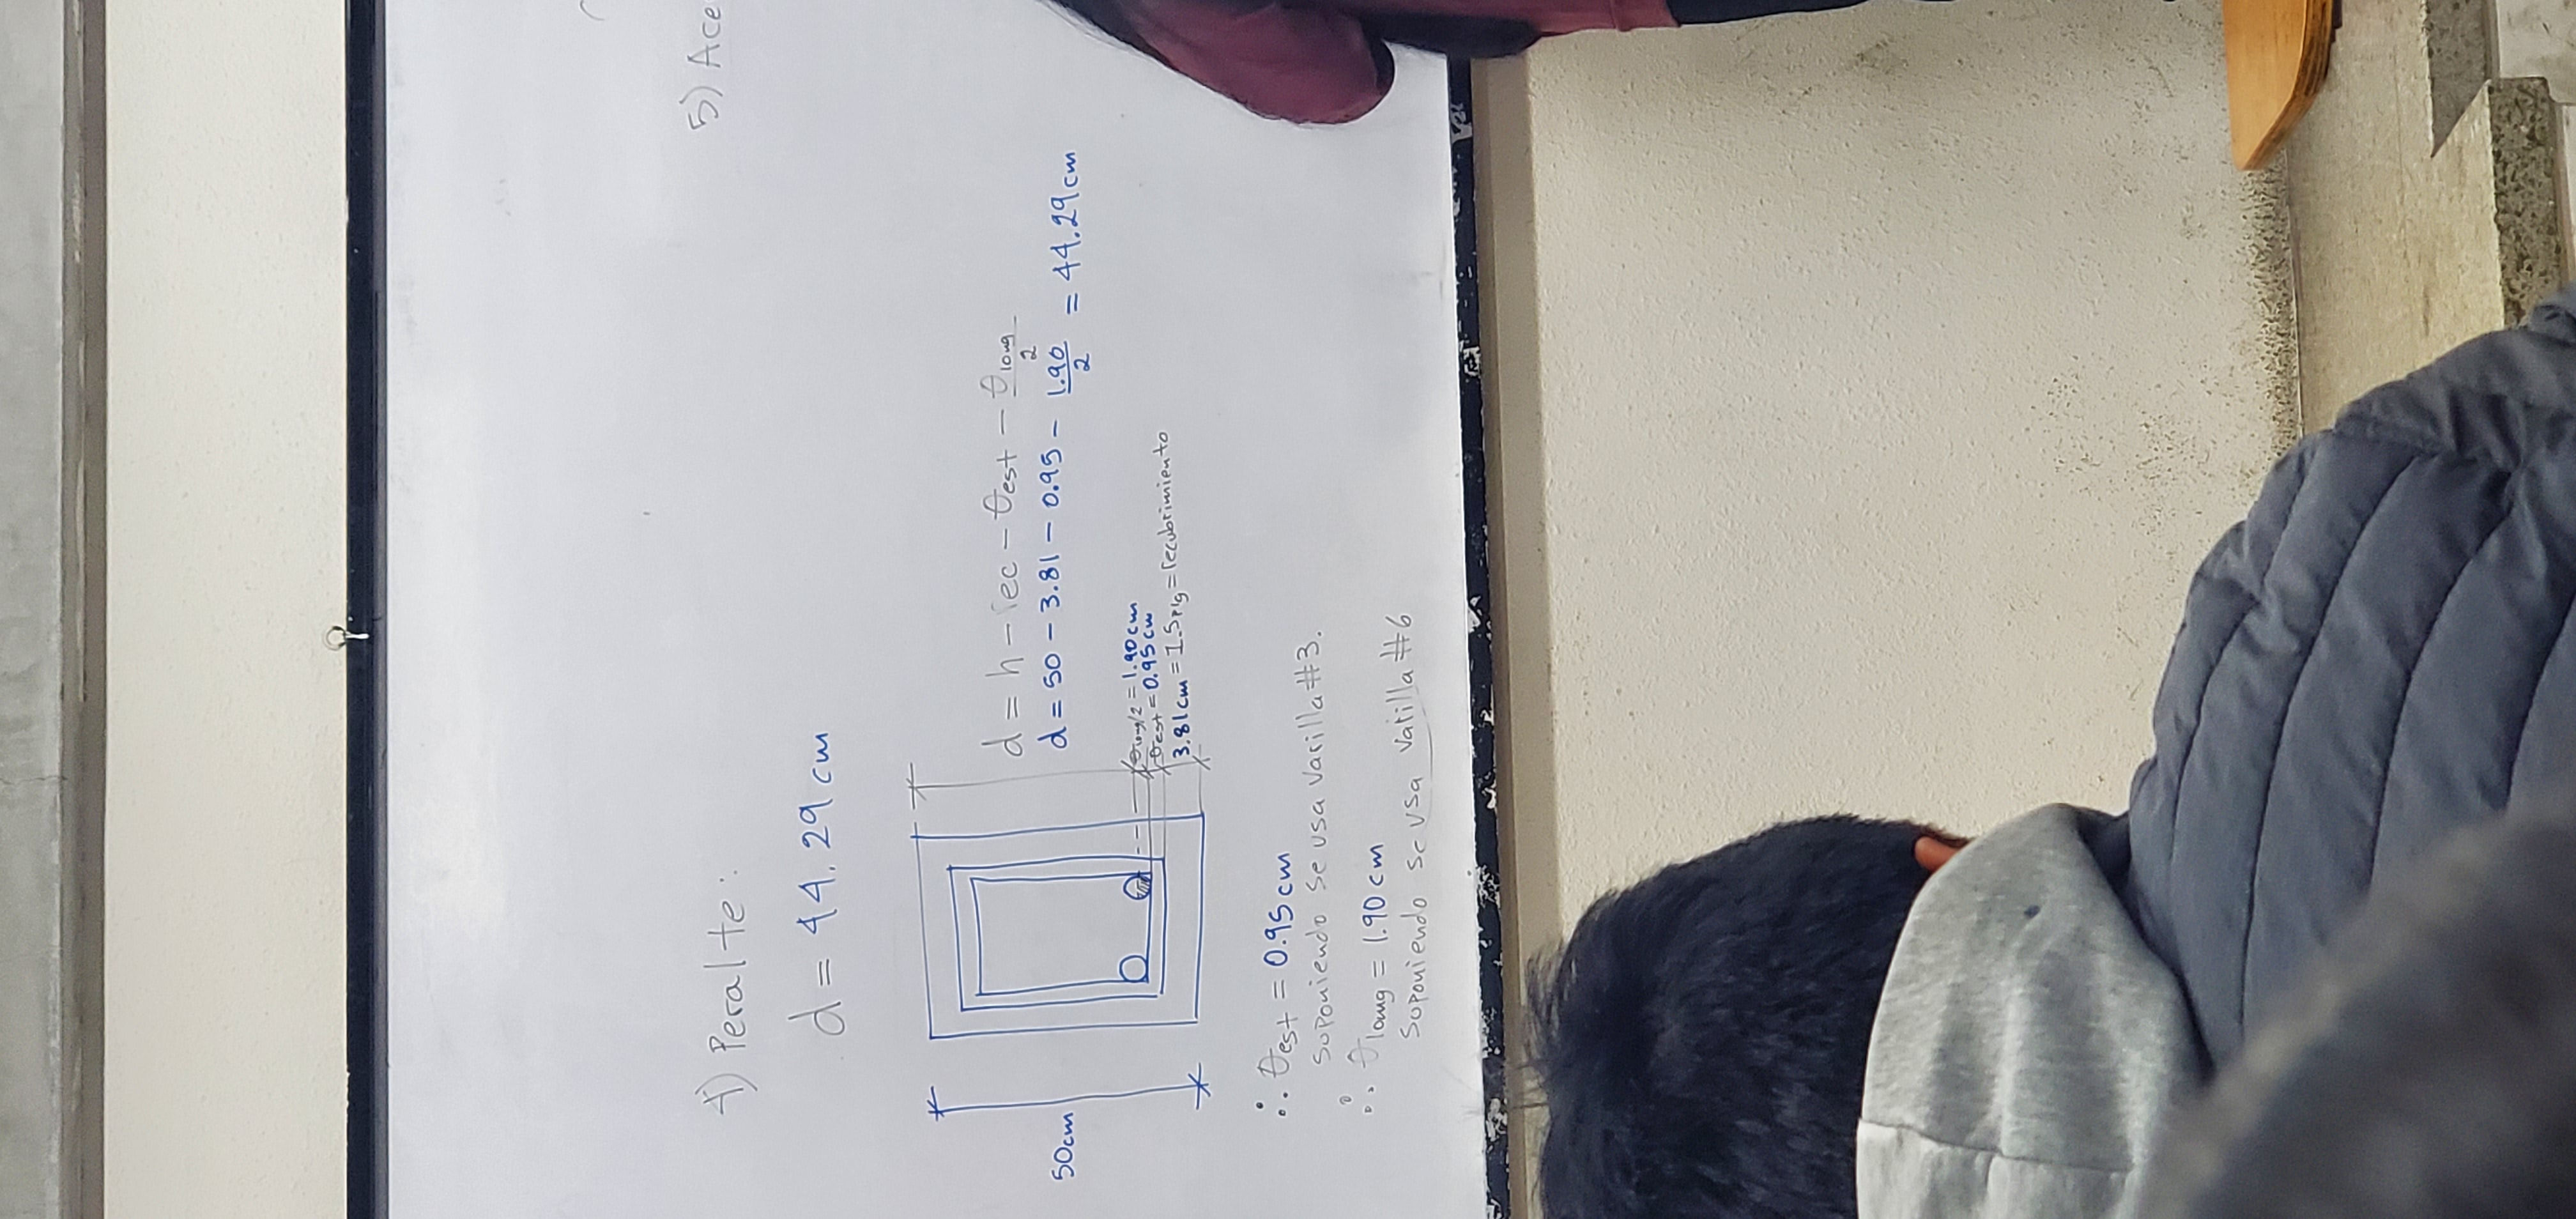 4) Peralte:
5) Ace
d = 44.29 cm
50cm
d = h - rec - θest - θlong/2
d = 50 - 3.81 - 0.95 - 1.90/2 = 44.29cm
θlong/2 = 1.90cm
θest = 0.95cm
3.81cm = 1.5plg = recubrimiento
∴ θest = 0.95cm
suponiendo se usa varilla #3.
∴ θlong = 1.90 cm
Suponiendo se usa varilla #6